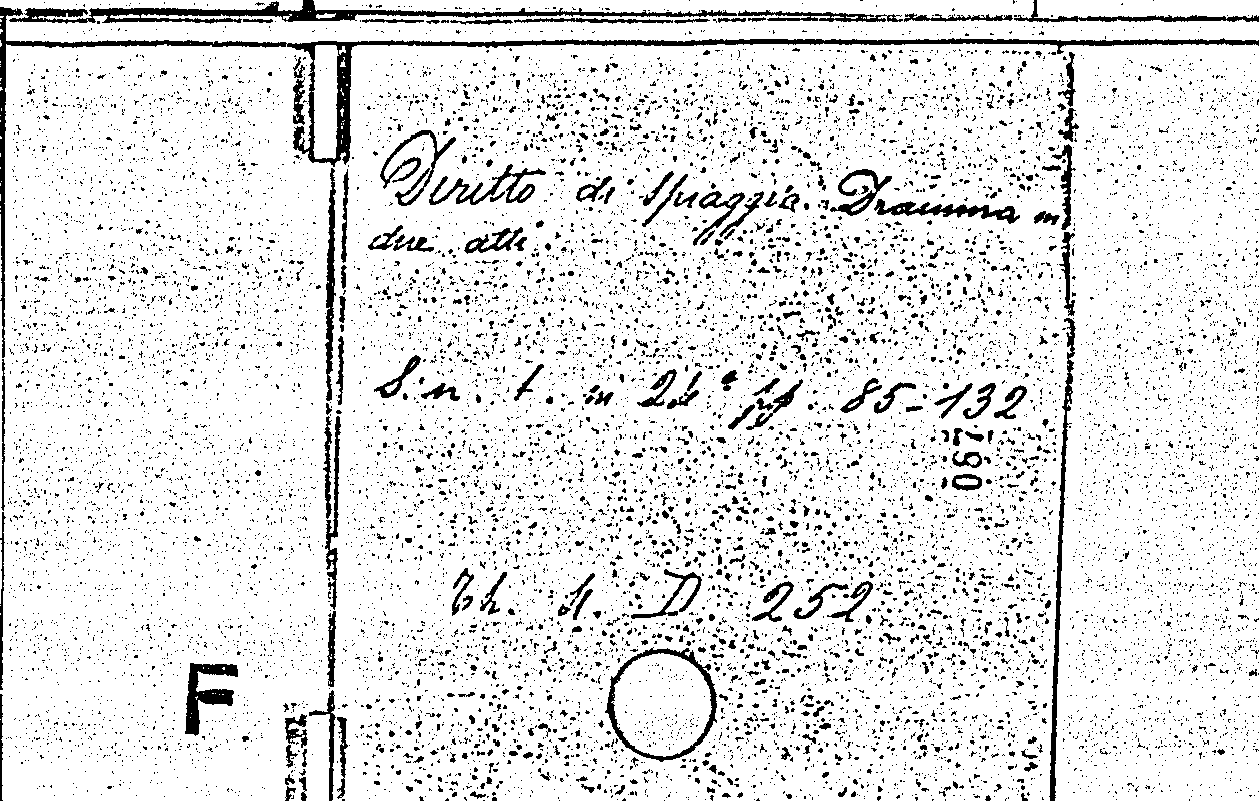 Diritto di spiaggia. Dramma in
due atti.
S. n. t. in 24° pp. 85-132
067
Th. H. D 252
F